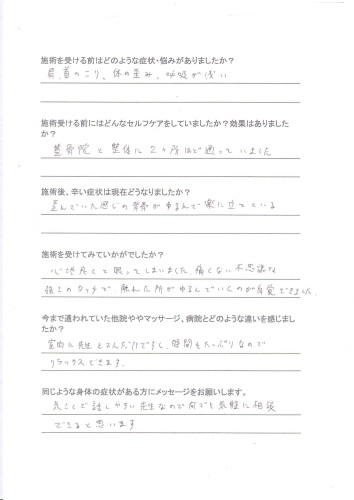 施術を受ける前はどのような症状・悩みがありましたか？
肩、首のこり、体の歪み、呼吸が浅い
施術受ける前にはどんなセルフケアをしていましたか？効果はありました
か？
整骨院と整体に2ヶ所ほど通っていました
施術後、辛い症状は現在どうなりましたか？
歪んでいた感じの背骨がゆるんで楽に立てている
施術を受けてみていかがでしたか？
心地良くて眠ってしまいました。痛くない不思議な
強さのタッチで、触れた所がゆるんでいくのが自覚できました。
今まで通われていた他院ややマッサージ、病院とどのような違いを感じまし
たか？
室内に先生と2人だけですし、時間もたっぷりなので
リラックスできます。
同じような身体の症状がある方にメッセージをお願いします。
気さくで話しやすい先生なので何でも気軽に相談
できると思います